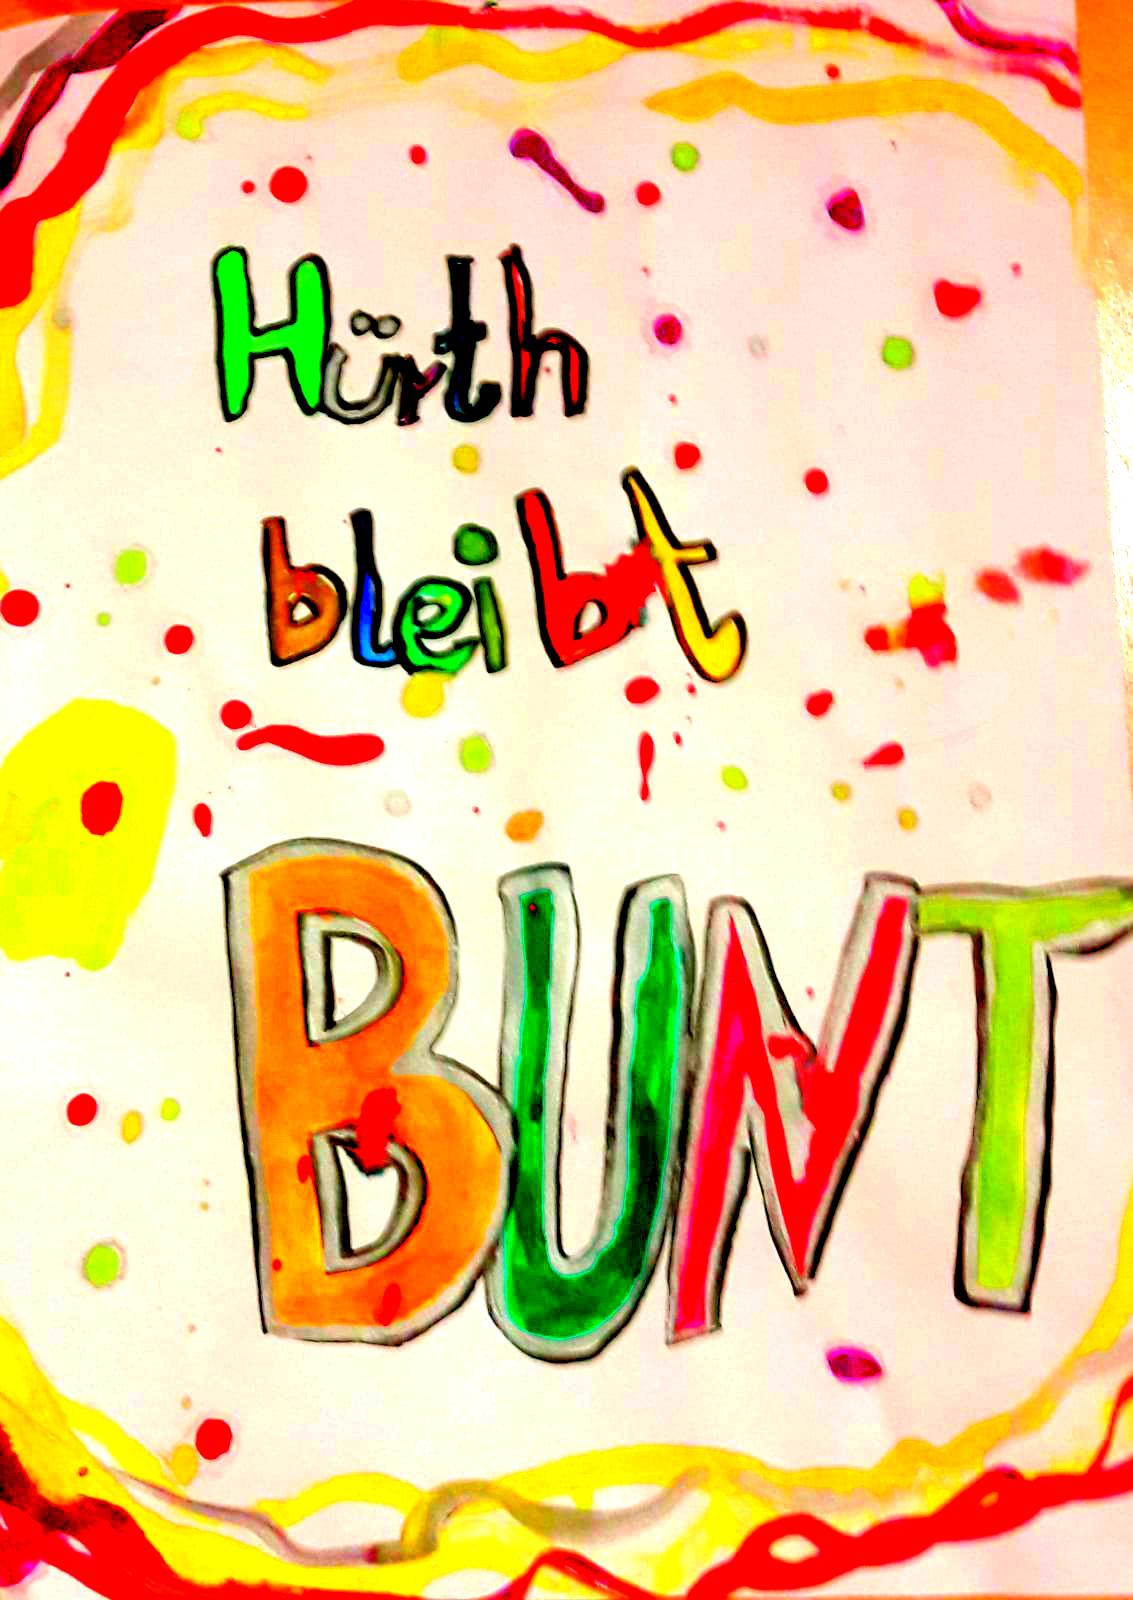 Hürth
bleibt
BUNT